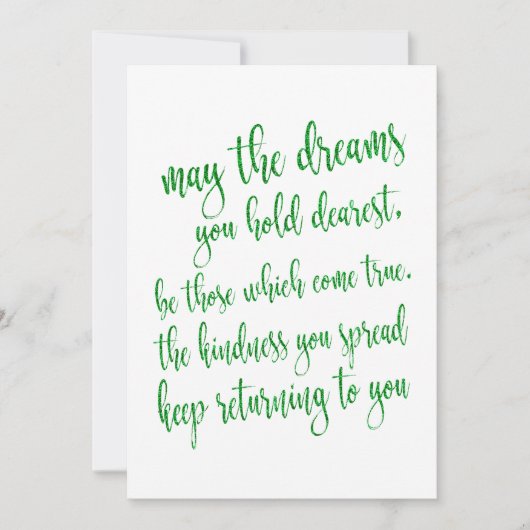 may the dreams
you hold dearest,
be those which come true.
the kindness you spread
keep returning to you